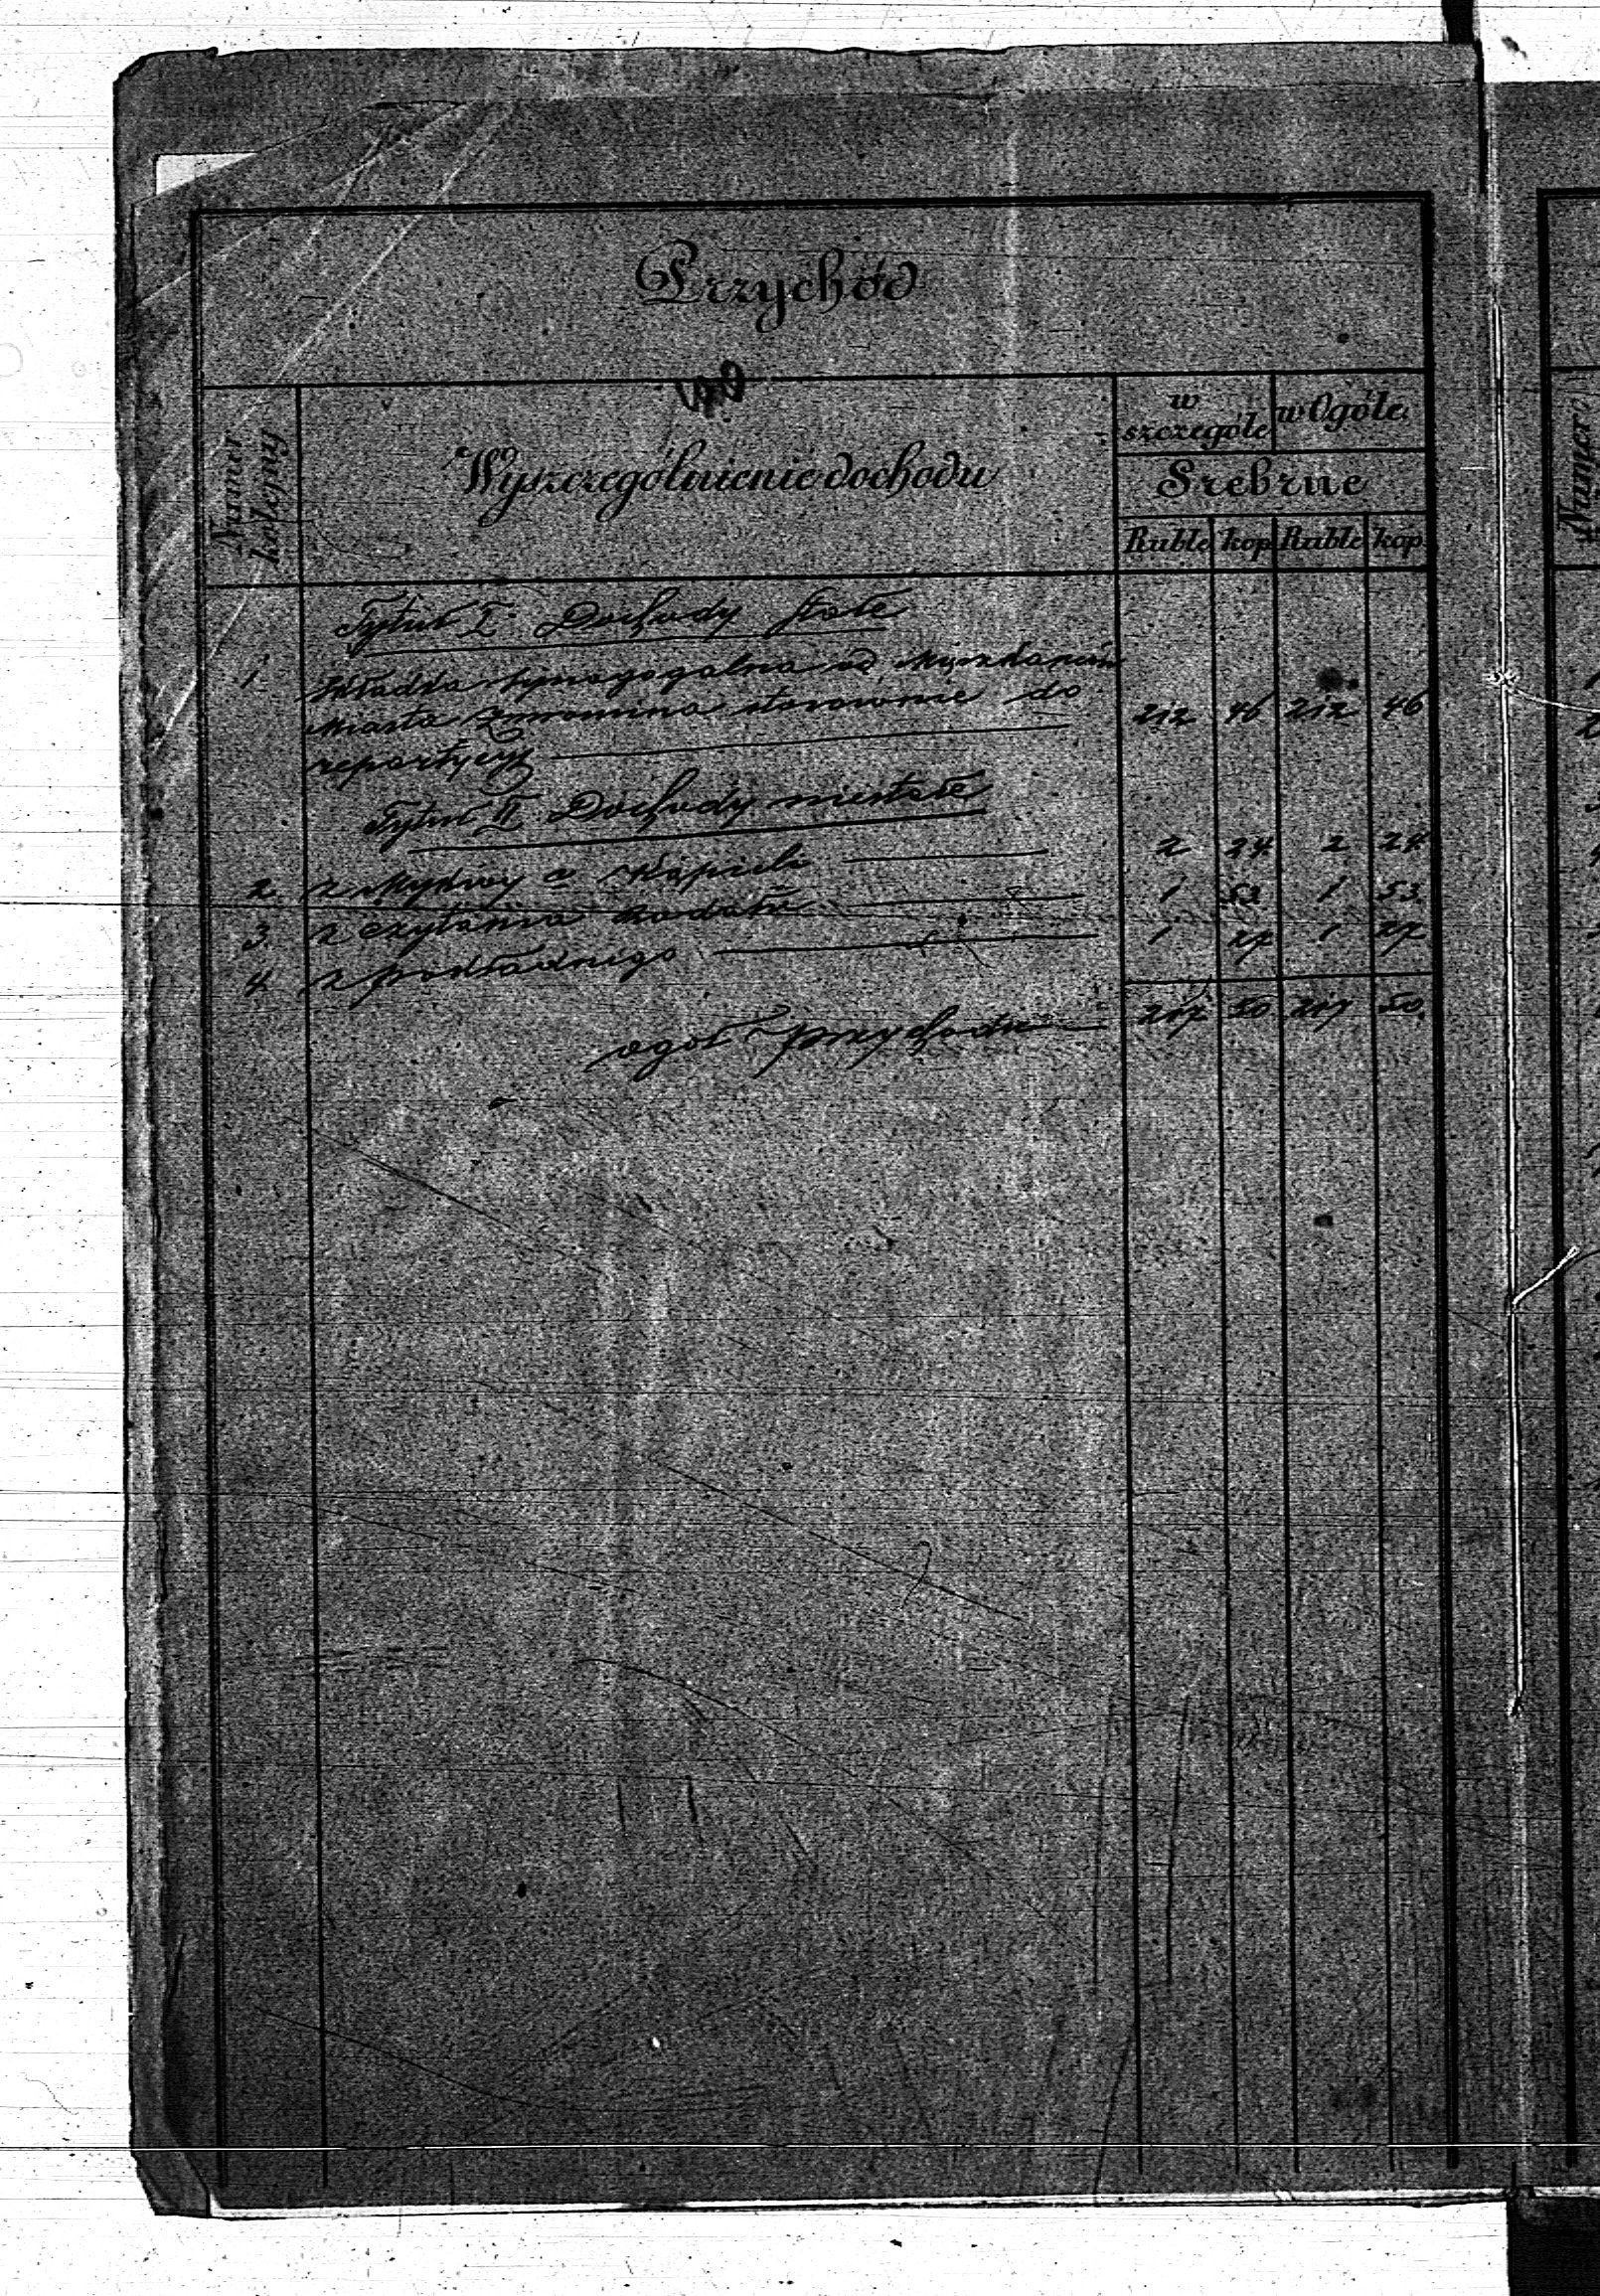 Przychód
Numer kolejny
Wyszczególnienie dochodu
w szczególe
w Ogóle.
Srebrne
Ruble kop Ruble kop.
Tytuł I. Dochody stałe
1 Składka synagogalna od Mieszkańców
Miasta stosownie do 212 46 212 46
repartycyi
Tytuł II Dochody niestałe
2. z Mykwy Kąpieli 2 24 2 24
3. z czytania rodałów 1 53 1 53.
4. z pokładnego 1 27 1 27
ogół przychodu 217 50 217 50.
Numer